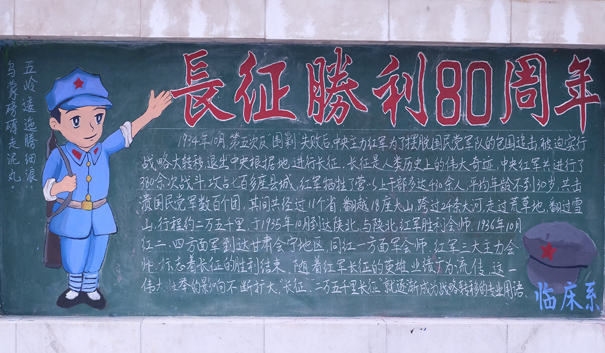 長征勝利80周年
五岭逶迤腾细浪
乌蒙磅礴走泥丸。
1934年10月,第五次反“围剿”失败后,中央主力红军为了摆脱国民党军队的包围追击,被迫实行
战略大转移,退出中央根据地,进行长征。长征是人类历史上的伟大奇迹,中央红军共进行了
380余次战斗,攻占七百多座县城,红军牺牲了营以上干部多达430余人,平均年龄不到30岁,共击
溃国民党军数百个团,其间共经过11个省,翻越18座大山,跨过24条大河,走过荒草地,翻过雪
山,行程约二万五千里,于1935年10月到达陕北,与陕北红军胜利会师。1936年10月
红二、四方面军到达甘肃会宁地区,同红一方面军会师。红军三大主力会
师,标志着长征的胜利结束。随着红军长征的英雄业绩广为流传,这一
伟大壮举的影响不断扩大,“长征、二万五千里长征”就逐渐成为战略转移的专业用语。
临床系